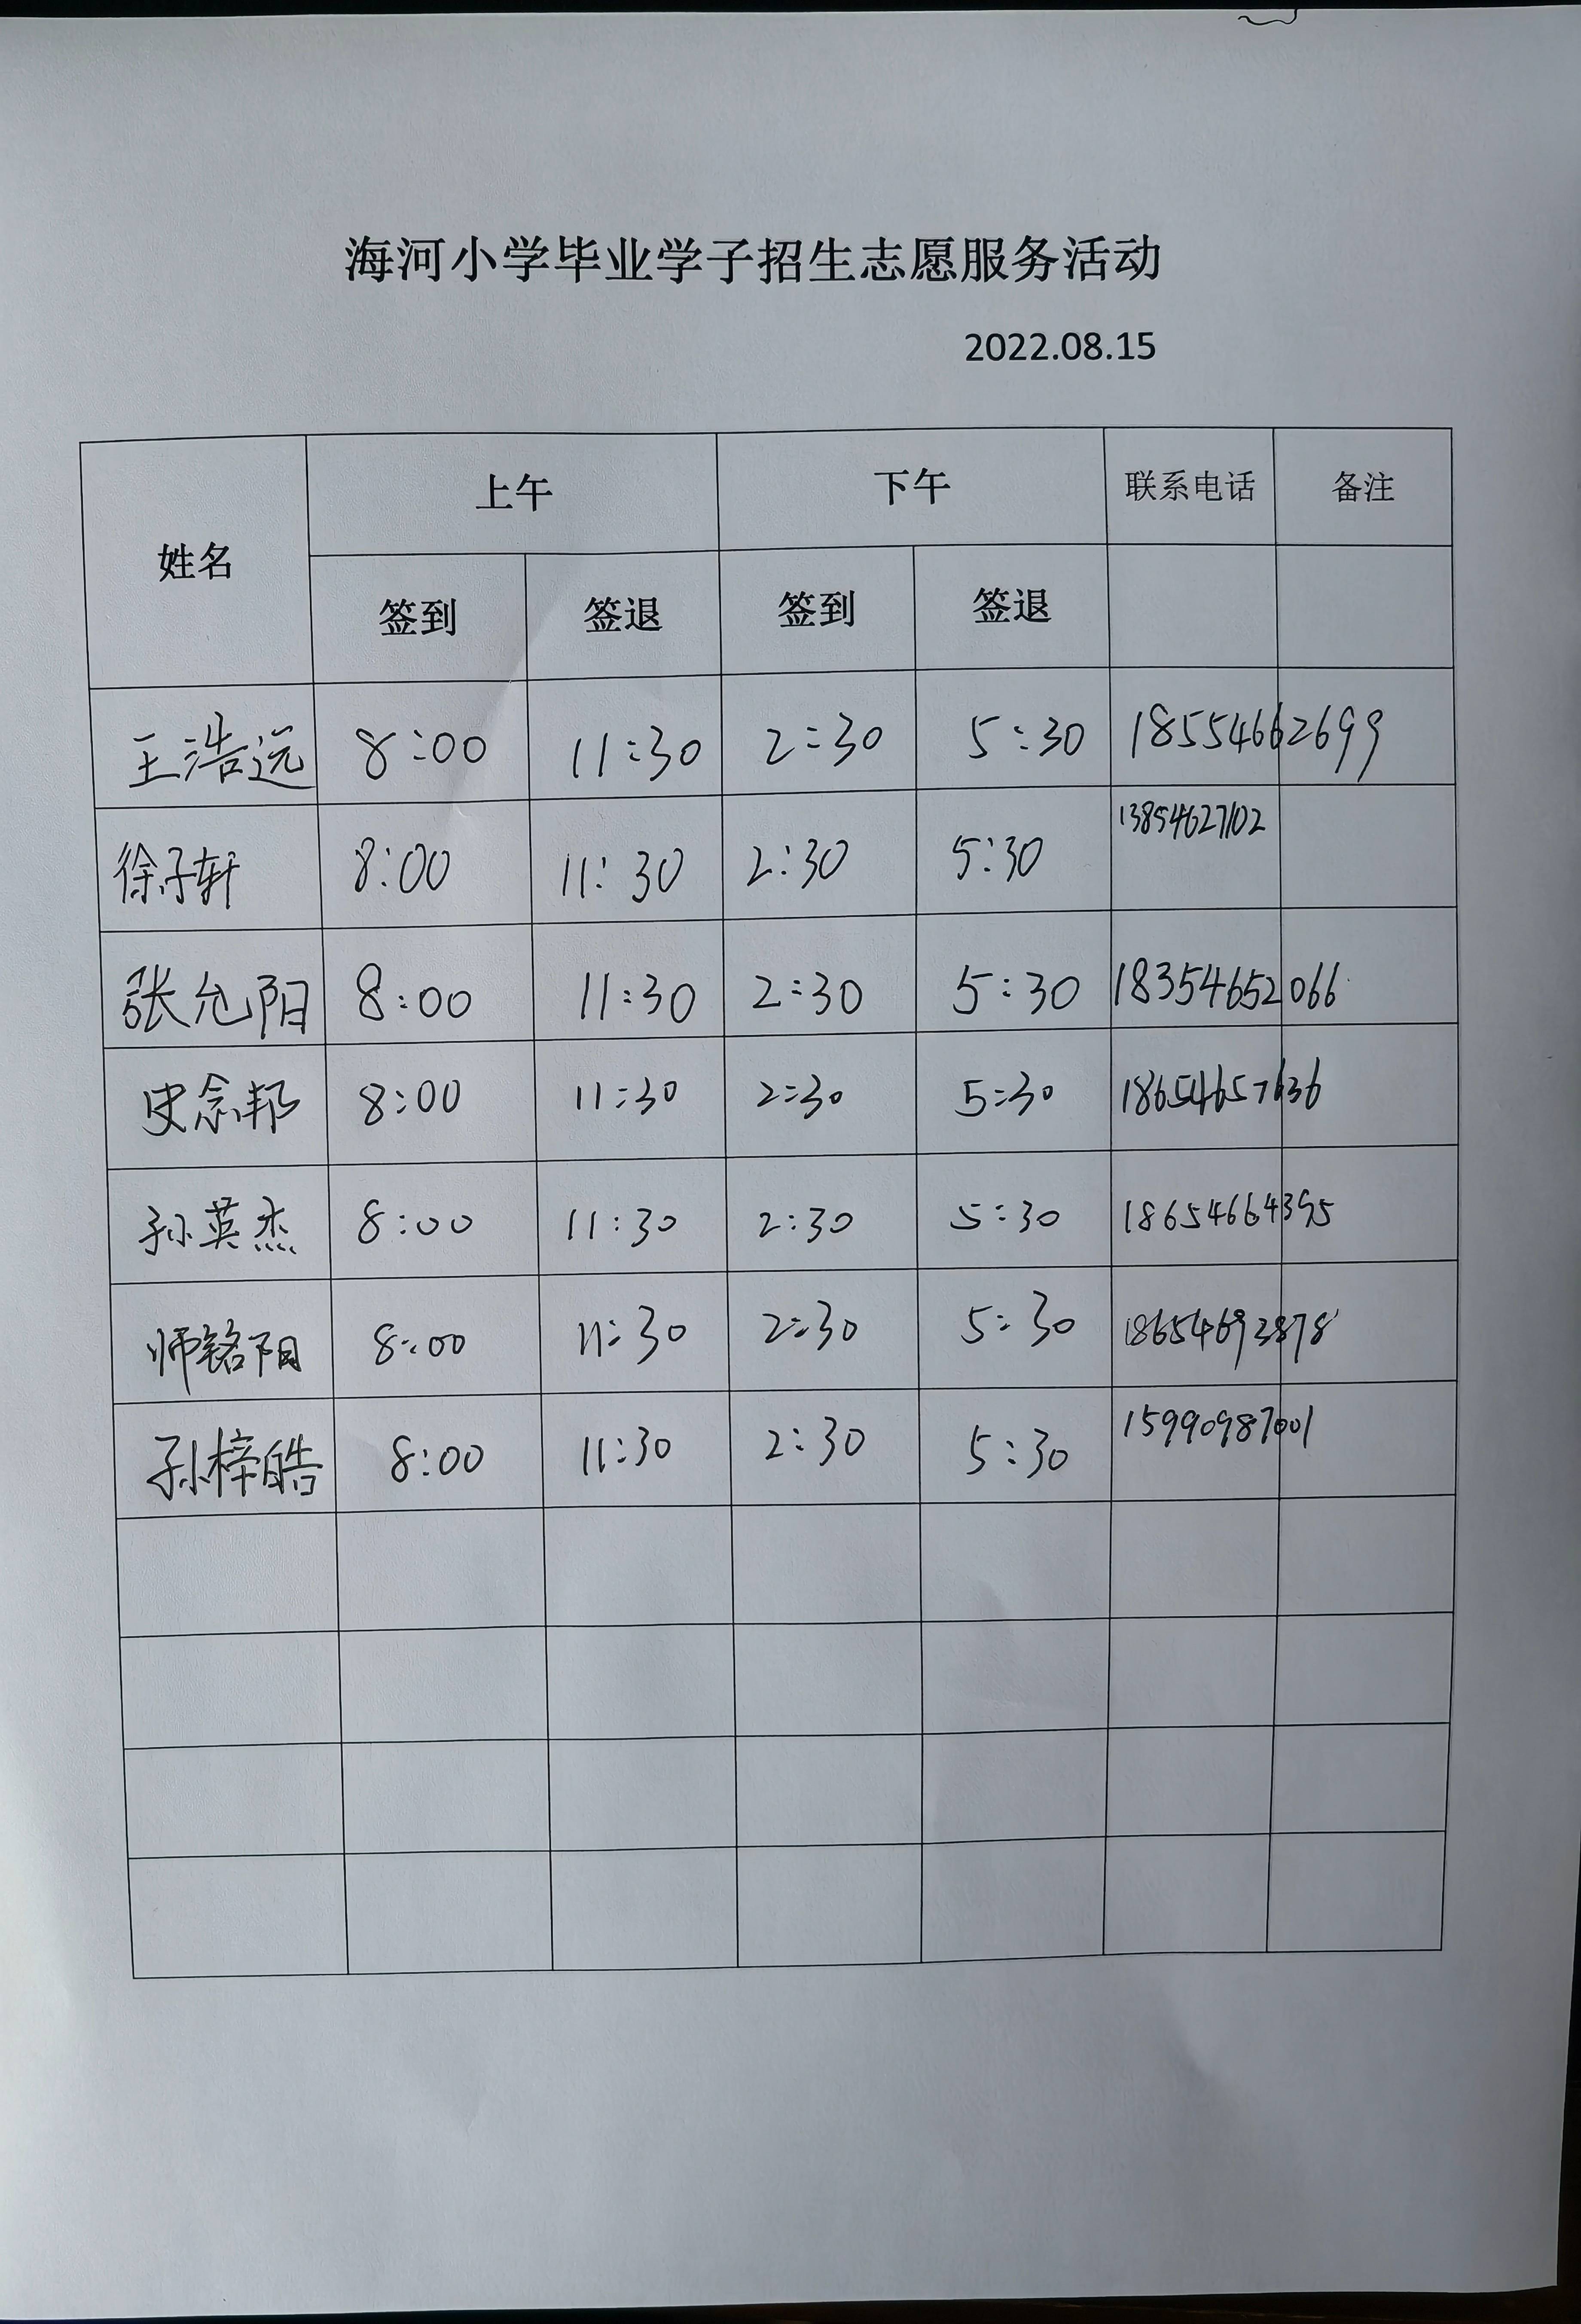 海河小学毕业学子招生志愿服务活动
2022.08.15
姓名 上午 下午 联系电话 备注
签到 签退 签到 签退
王浩远 8:00 11:30 2:30 5:30 18554662699
徐子轩 8:00 11:30 2:30 5:30 13854627102
张允阳 8:00 11:30 2:30 5:30 18354652066
史念邦 8:00 11:30 2:30 5:30 18654657636
孙英杰 8:00 11:30 2:30 5:30 18654664395
师铭阳 8:00 11:30 2:30 5:30 18654693878
孙梓皓 8:00 11:30 2:30 5:30 15990987001